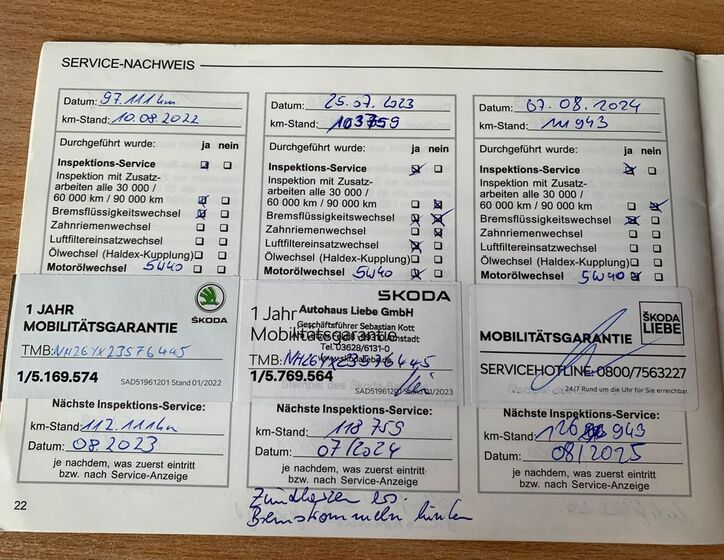 SERVICE-NACHWEIS
Datum: 97.111km
km-Stand: 10.08.2022
Durchgeführt wurde: ja nein
Inspektions-Service
Inspektion mit Zusatz-
arbeiten alle 30 000 /
60 000 km / 90 000 km
Bremsflüssigkeitswechsel
Zahnriemenwechsel
Luftfiltereinsatzwechsel
Ölwechsel (Haldex-Kupplung)
Motorölwechsel 5W40
1 JAHR
MOBILITÄTSGARANTIE
ŠKODA
TMB: NH26YX23576445
1/5.169.574
SAD51961201 Stand 01/2022
Nächste Inspektions-Service:
km-Stand: 112.111km
Datum: 08.2023
je nachdem, was zuerst eintritt
bzw. nach Service-Anzeige
Datum: 25.07.2023
km-Stand: 103759
Durchgeführt wurde: ja nein
Inspektions-Service
Inspektion mit Zusatz-
arbeiten alle 30 000 /
60 000 km / 90 000 km
Bremsflüssigkeitswechsel
Zahnriemenwechsel
Luftfiltereinsatzwechsel
Ölwechsel (Haldex-Kupplung)
Motorölwechsel 5W40
ŠKODA
1 Jahr
Autohaus Liebe GmbH
Geschäftsführer Sebastian Kott
Mobilitätsgarantie
Tel. 03628/6131-0
TMB: NH26YX23576445
1/5.769.564
SAD51961201 Stand 01/2023
Nächste Inspektions-Service:
km-Stand: 118 759
Datum: 07/2024
je nachdem, was zuerst eintritt
bzw. nach Service-Anzeige
Datum: 07.08.2024
km-Stand: 111943
Durchgeführt wurde: ja nein
Inspektions-Service
Inspektion mit Zusatz-
arbeiten alle 30 000 /
60 000 km / 90 000 km
Bremsflüssigkeitswechsel
Zahnriemenwechsel
Luftfiltereinsatzwechsel
Ölwechsel (Haldex-Kupplung)
Motorölwechsel 5W40
ŠKODA
LIEBE
MOBILITÄTSGARANTIE
SERVICEHOTLINE:0800/7563227
24/7 Rund um die Uhr für Sie erreichbar.
Nächste Inspektions-Service:
km-Stand: 126 943
Datum: 08/2025
je nachdem, was zuerst eintritt
bzw. nach Service-Anzeige
Bremstrommeln hinten
22